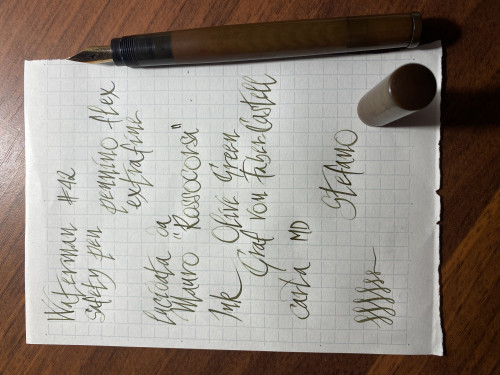 Waterman #42
Safety pen pennino flex
extrafine
Lucidata da
Mauro "Rossocorsa"
Ink Olive Green
Graf von Faber Castell
carta MD
Stefano